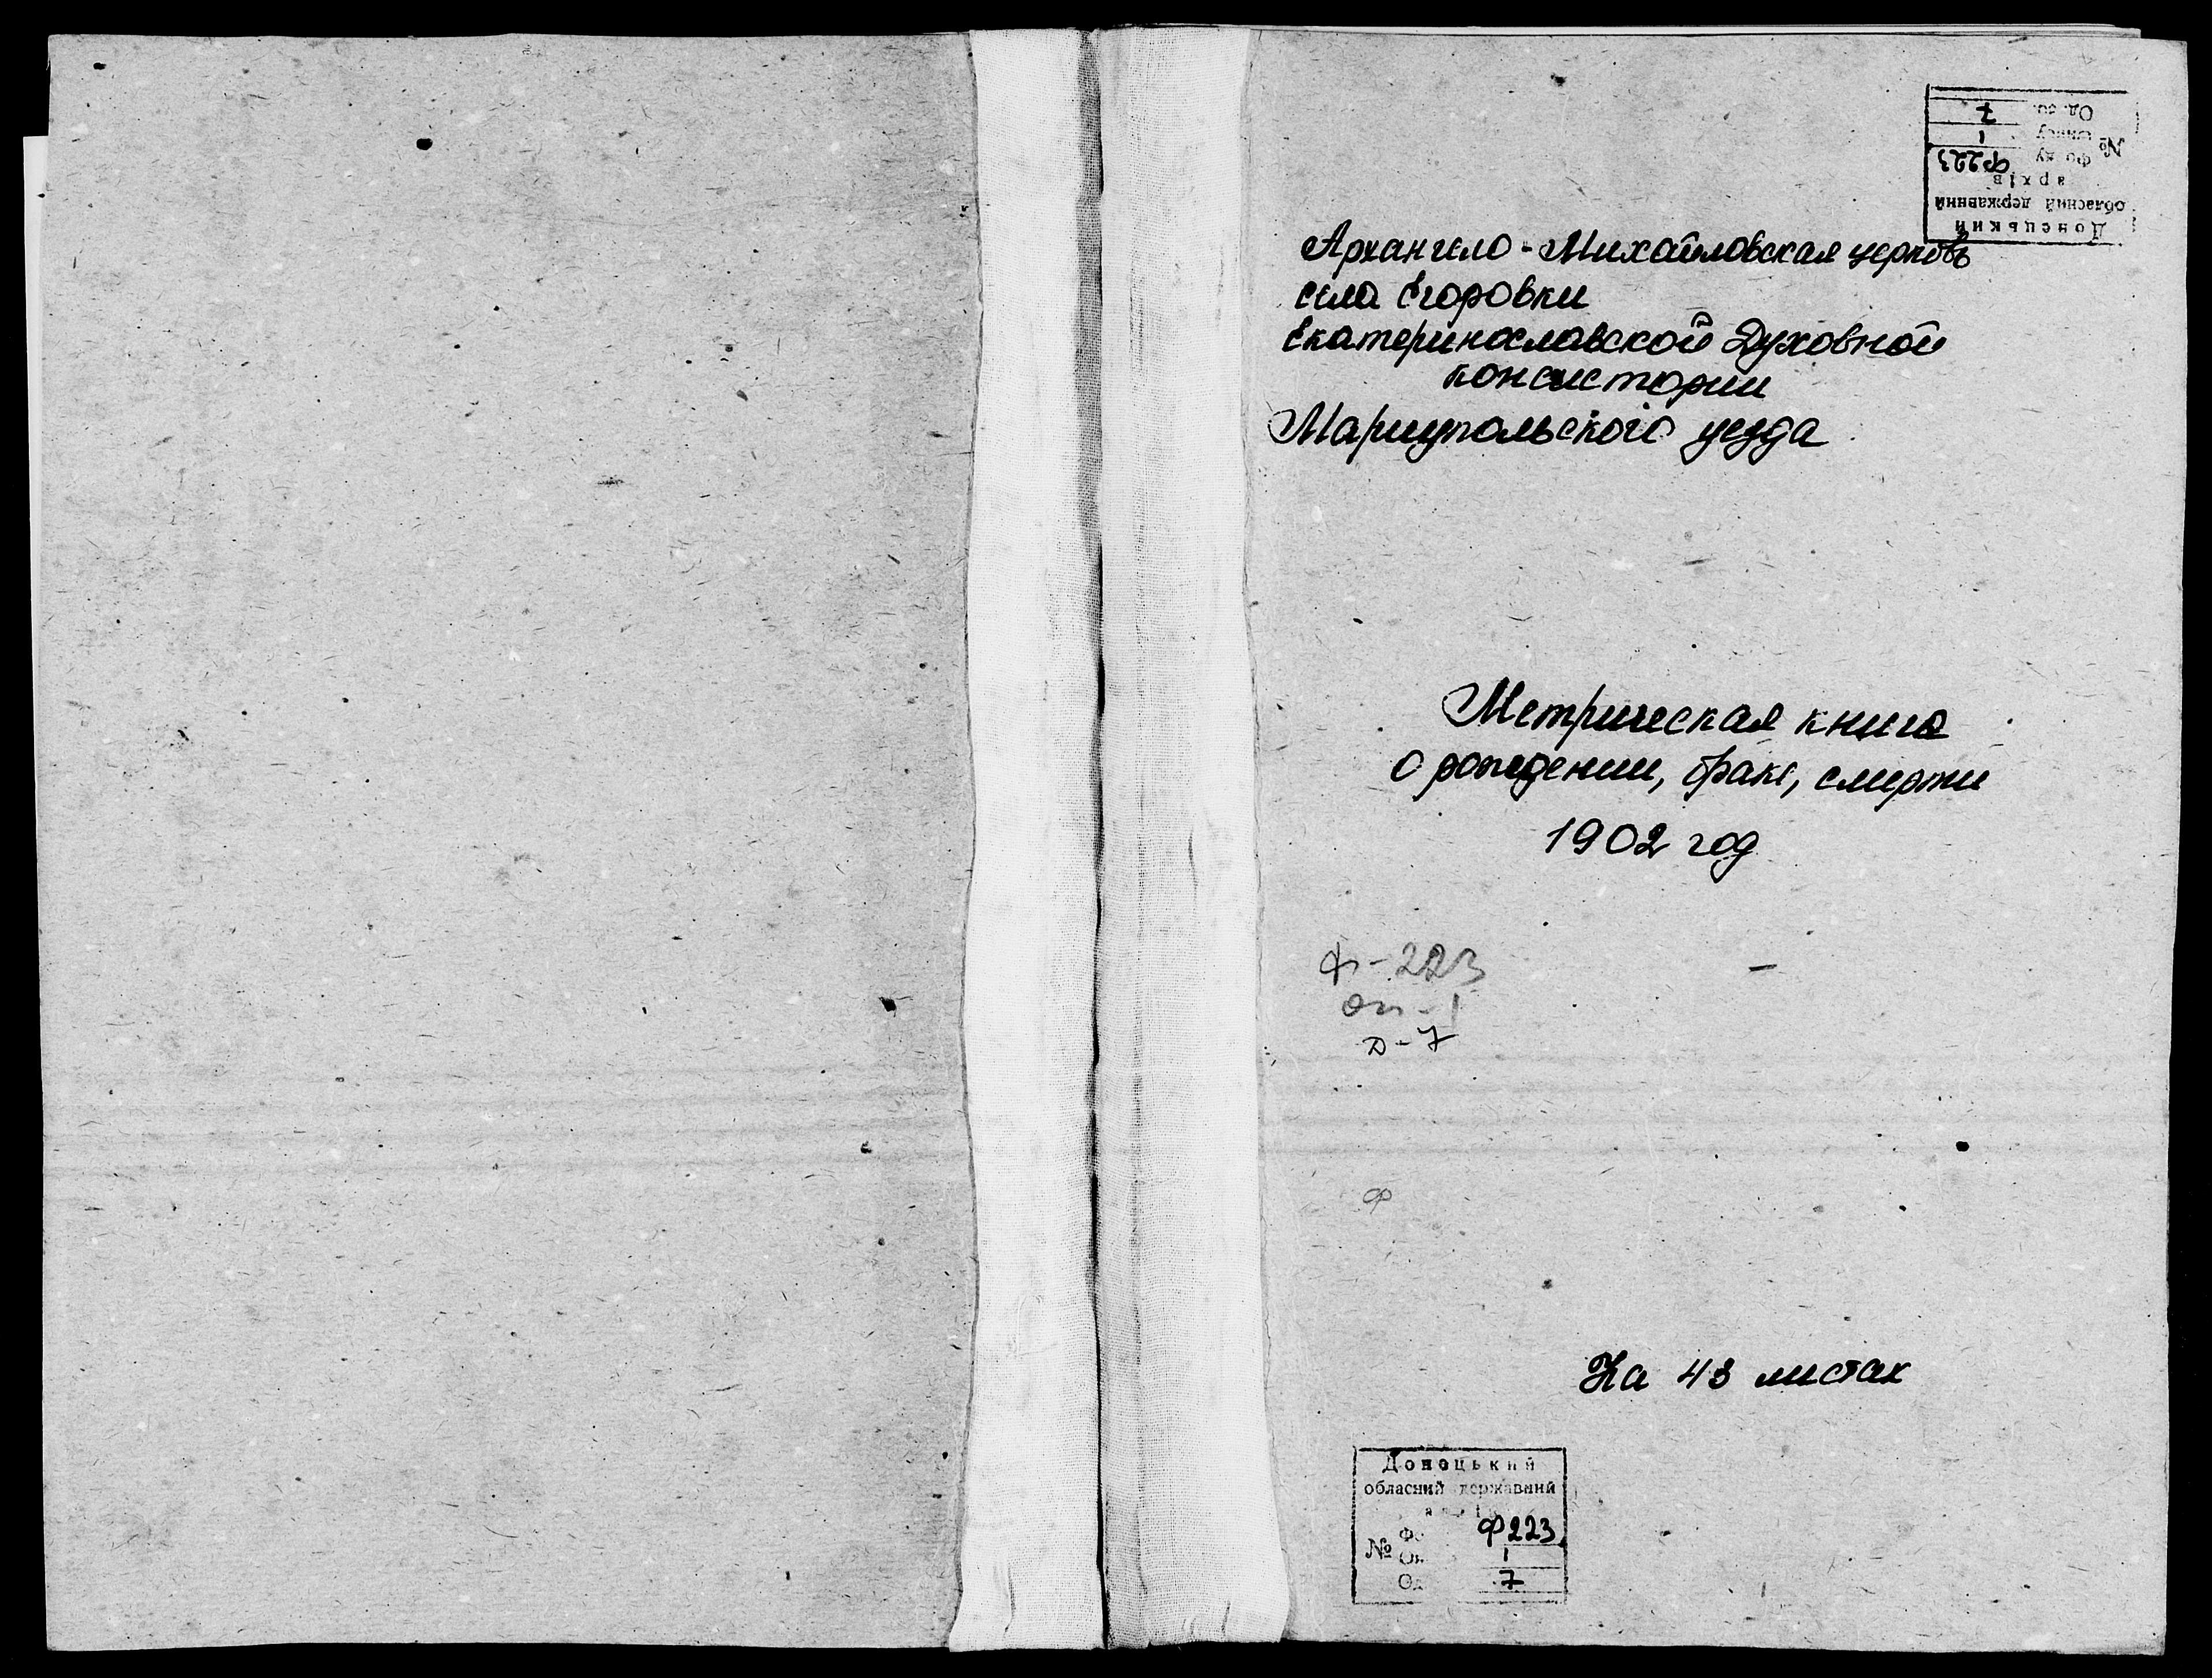 Донецький
обласний державний
архів
№ Фонду Ф223
Опису 1
Од. зб. 7
Архангело-Михайловская церковь
села Егоровки
Екатеринославской Духовной
консистории
Мариупольского уезда
Метрическая книга
о рождении, браке, смерти
1902 год
Ф-223
оп-1
Д-7
Ф
На 43 листах
Донецький
обласний державний
№ Ф223
1
7